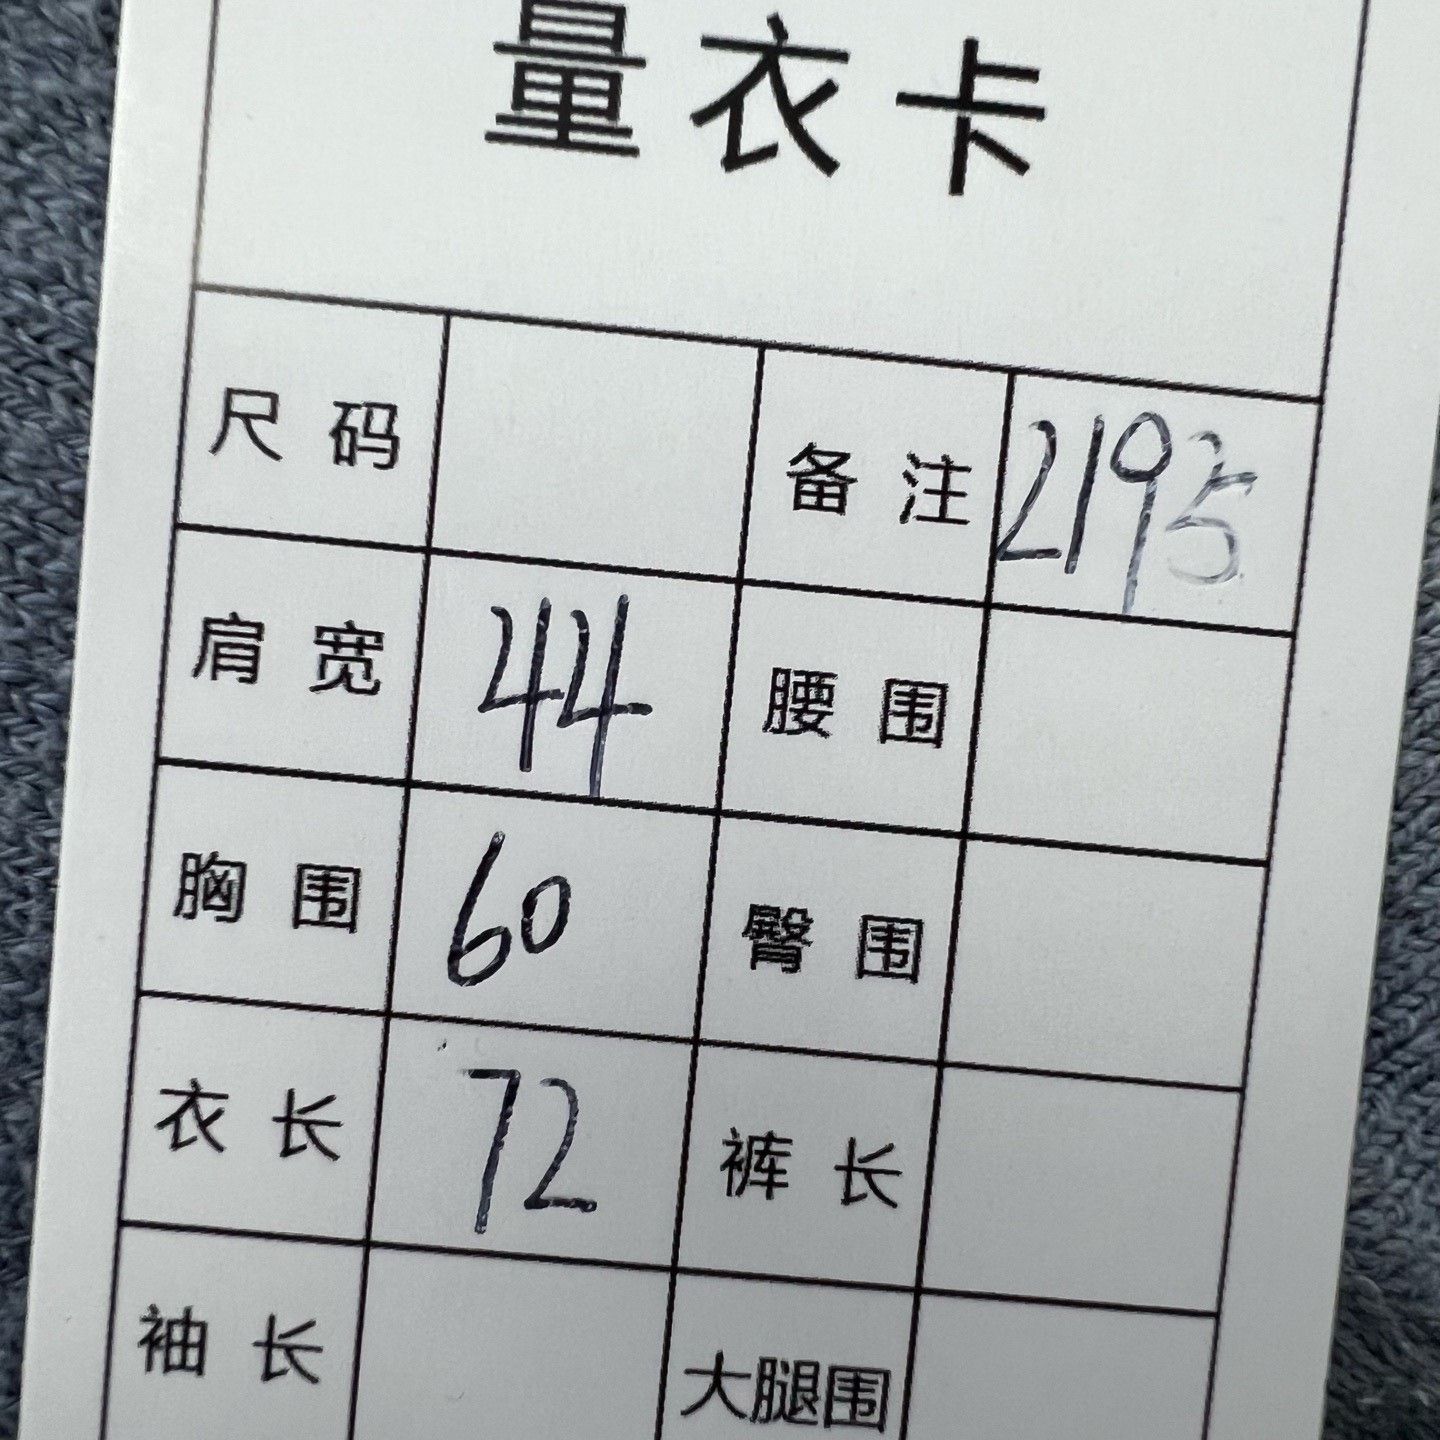 量衣卡
尺码 备注 2195
肩宽 44 腰围
胸围 60 臀围
衣长 72 裤长
袖长 大腿围